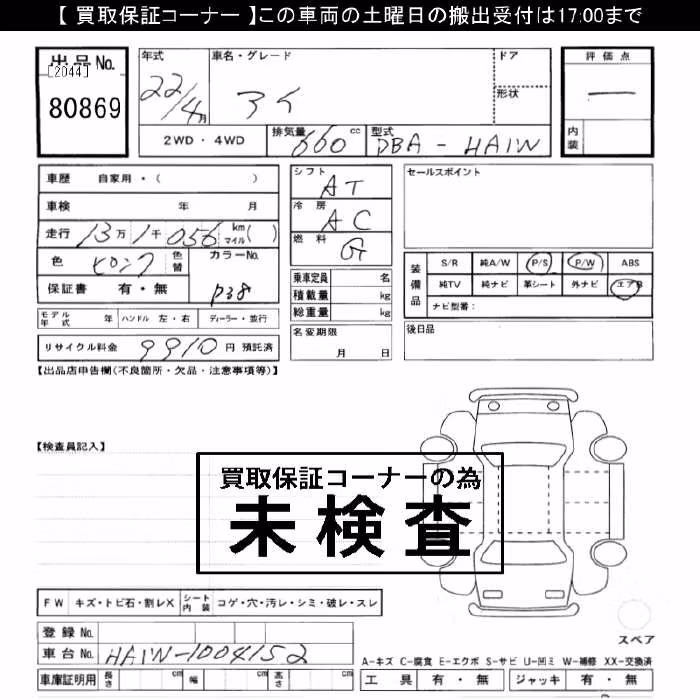 【 買取保証コーナー 】この車両の土曜日の搬出受付は17:00まで
出品No.
[2044]
80869
年式 22/4月
車名・グレード アイ
ドア
形状
評価点 —
内装
2WD・4WD
排気量 660 cc
型式 DBA-HA1W
車歴 自家用・( )
車検 年 月
走行 13万1千056 km マイル( )
色 ピンク 色替
カラーNo. P38
保証書 有・無
シフト AT
冷房 AC
燃料 G
乗車定員 名
積載量 kg
総重量 kg
セールスポイント
装備品 S/R 純A/W P/S P/W ABS
純TV 純ナビ 革シート 外ナビ エアB
ナビ型番:
モデル年式 年 ハンドル 左・右 ディーラー・並行
名変期限 月 日
後日品
リサイクル料金 9910 円 預託済
【出品店申告欄(不良箇所・欠品・注意事項等)】
【検査員記入】
買取保証コーナーの為
未検査
FW キズ・トビ石・割レX シート内装 コゲ・穴・汚レ・シミ・破レ・スレ
スペア
登録No.
車台No. HA1W-1004152
A-キズ C-腐食 E-エクボ S-サビ U-凹ミ W-補修 XX-交換済
車庫証明用 長さ cm 幅 cm 高さ cm
工具 有・無 ジャッキ 有・無